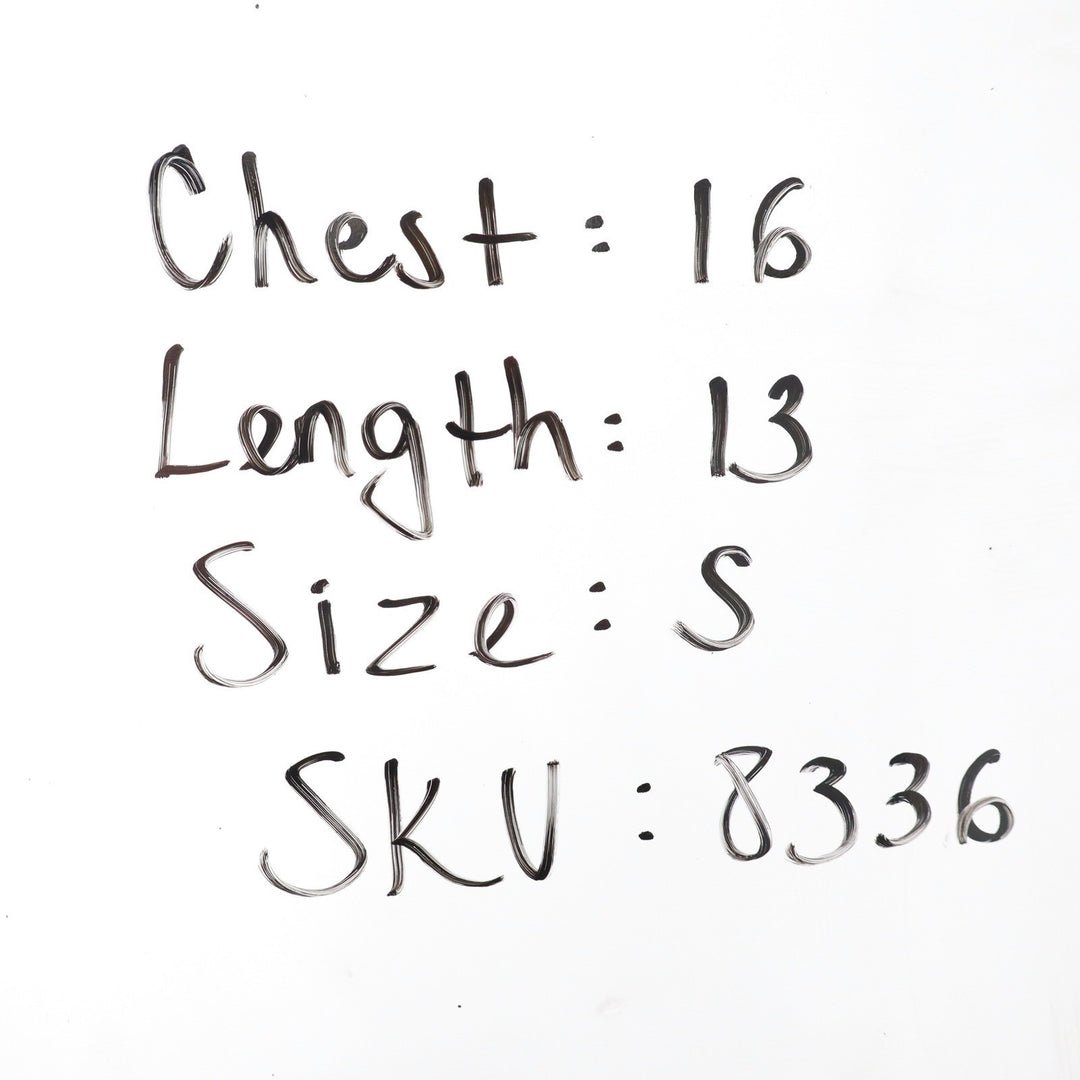 Chest: 16
Length: 13
Size: S
SKU: 8336